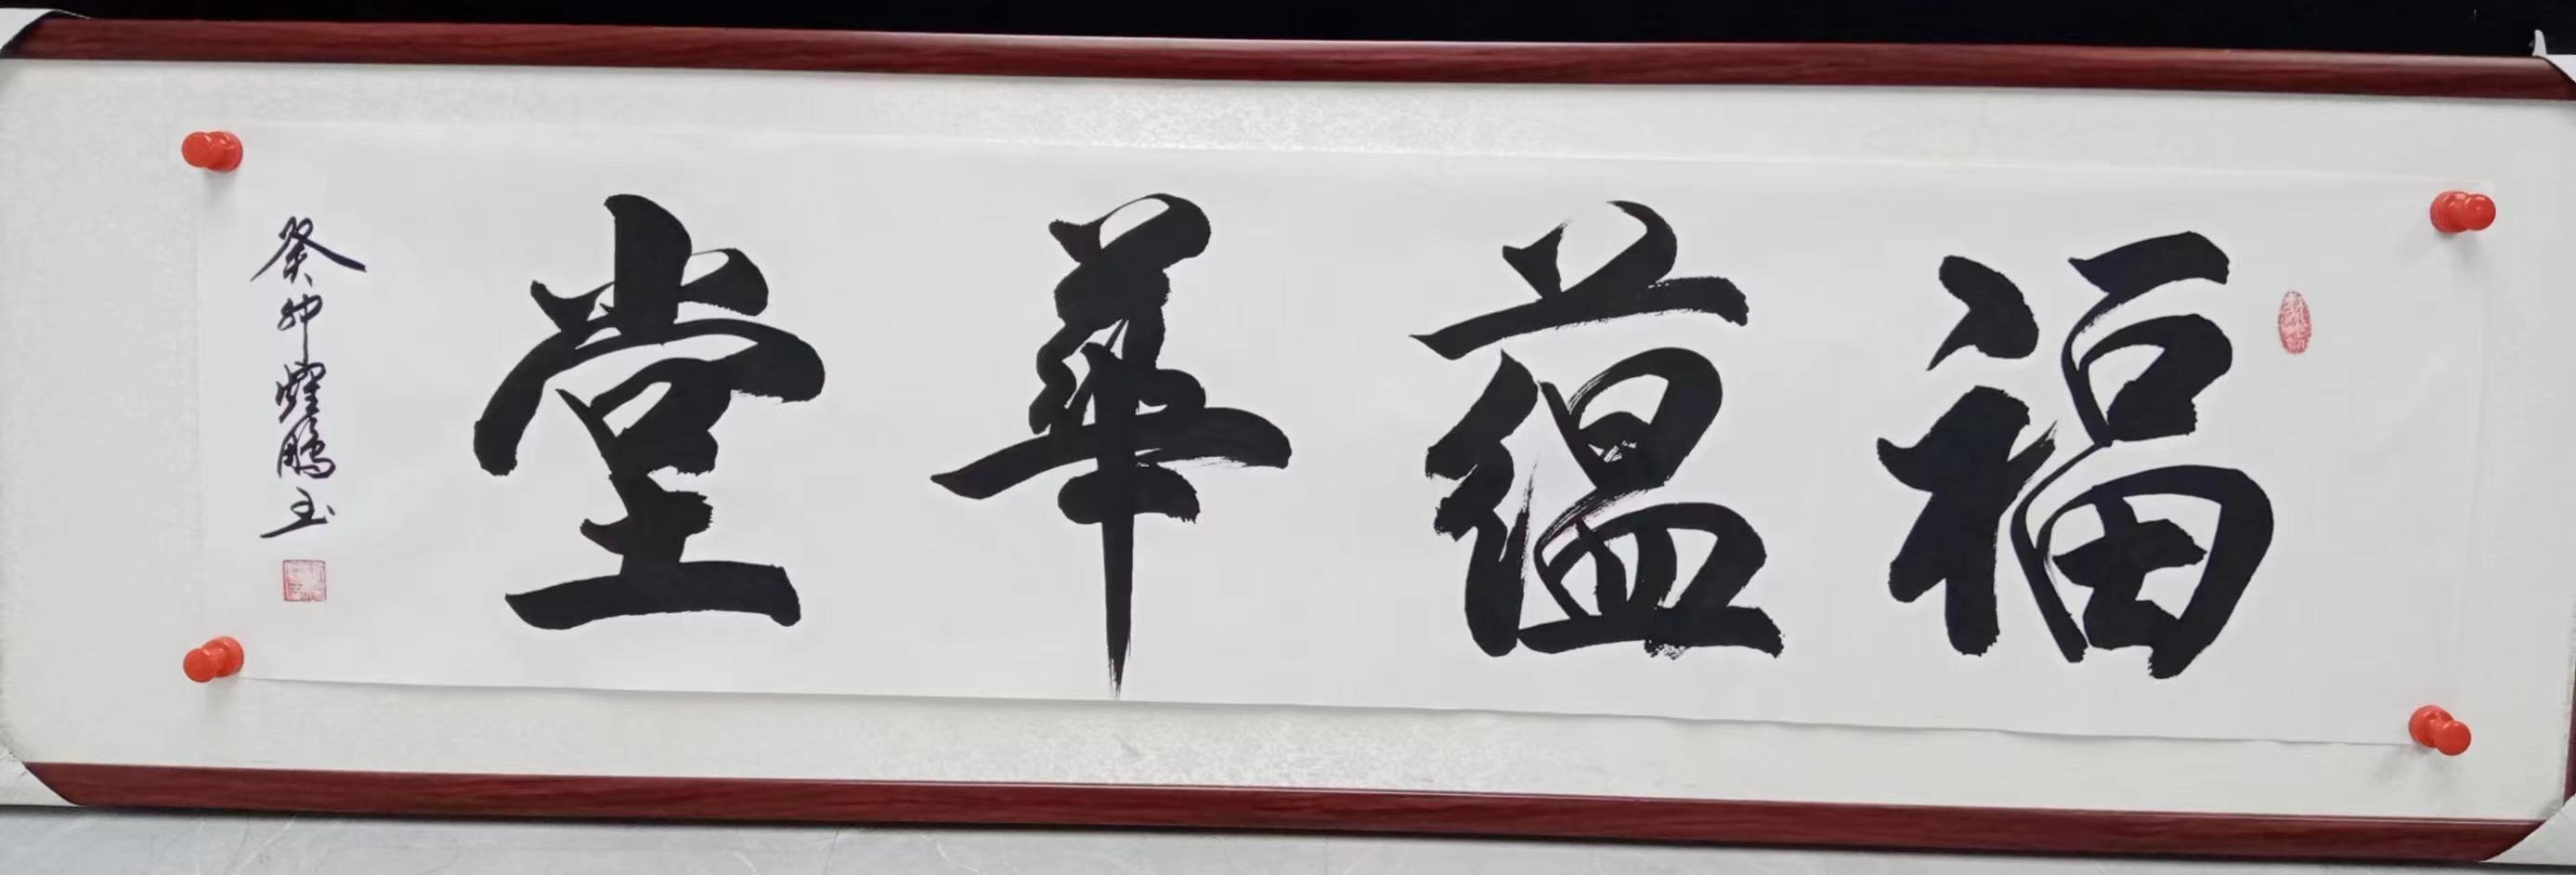 福蘊華堂
癸卯耀鵬书